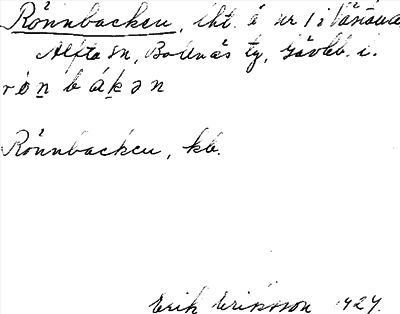 Rönnbacken, lht. å nr 1 i Vänsna
Alfta sn, Bollnäs tg, Gävleb. l.
rön bákən
Rönnbacken, kb.
Erik Eriksson 1927.